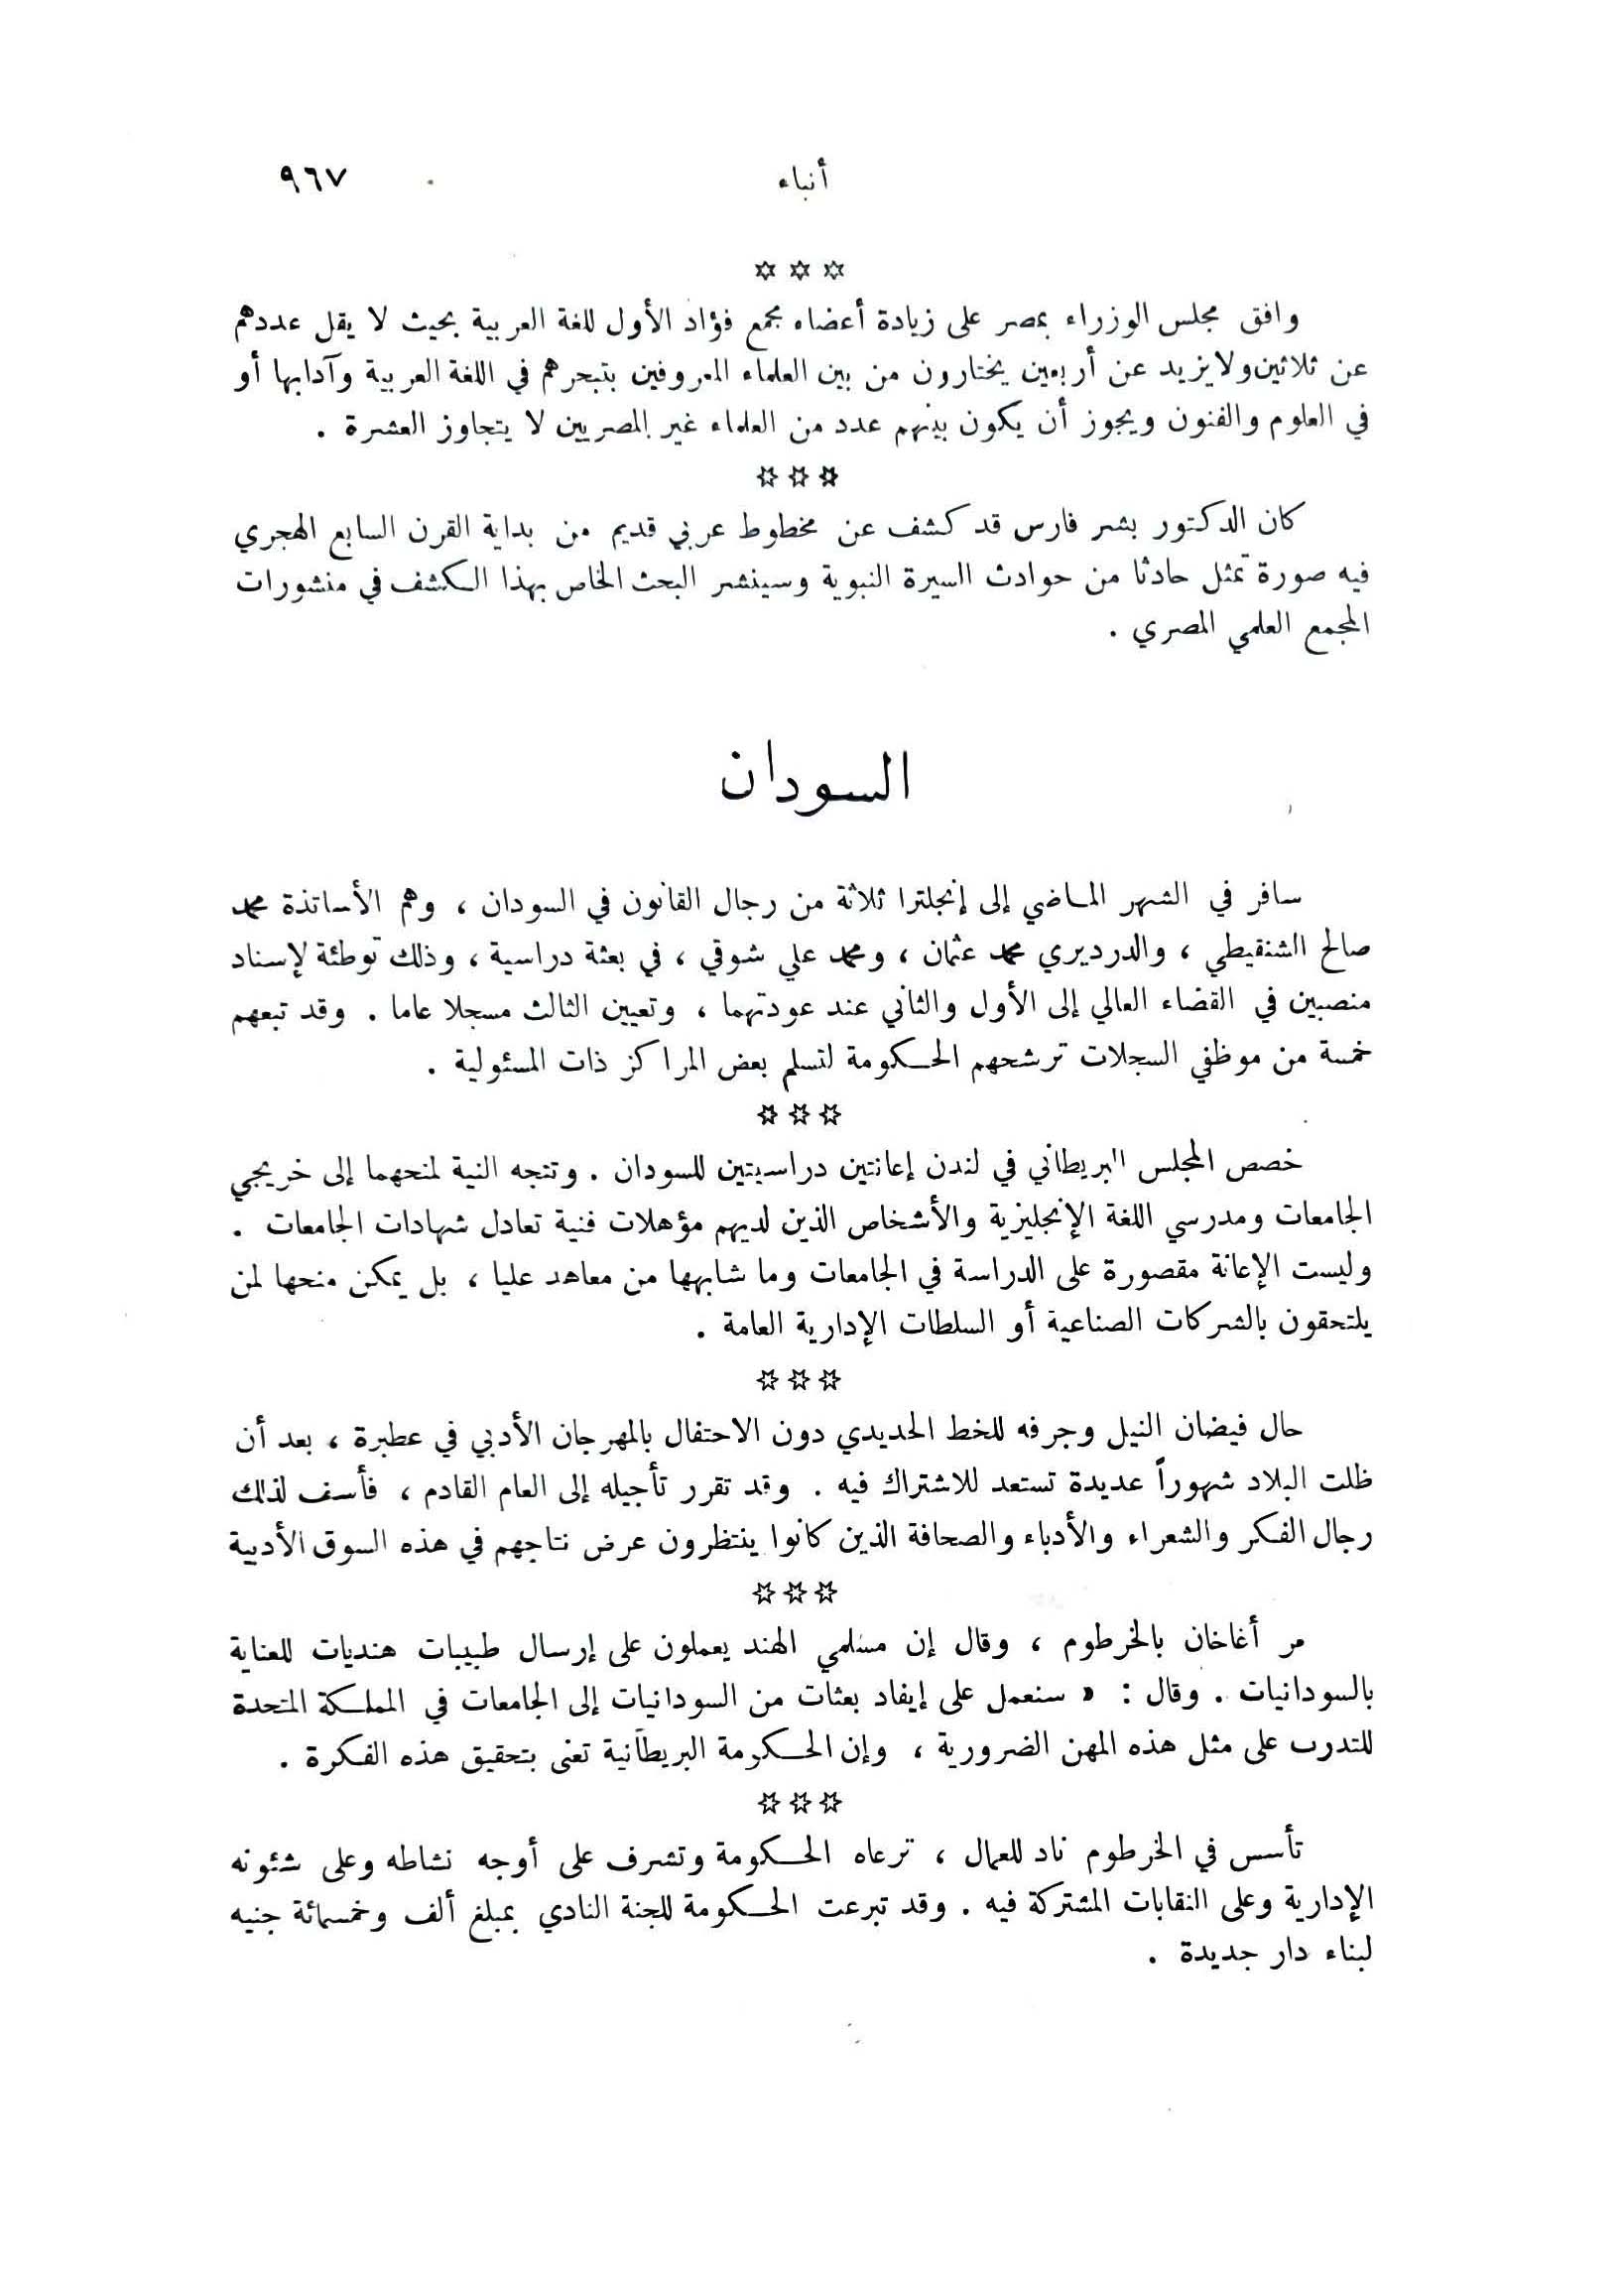 أنباء ٩٦٧
✡ ✡ ✡
وافق مجلس الوزراء بمصر على زيادة أعضاء مجمع فؤاد الأول للغة العربية بحيث لا يقل عددهم
عن ثلاثين ولا يزيد عن أربعين يختارون من بين العلماء المعروفين بتبحرهم في اللغة العربية وآدابها أو
في العلوم والفنون ويجوز أن يكون بينهم عدد من العلماء غير المصريين لا يتجاوز العشرة .
✡ ✡ ✡
كان الدكتور بشر فارس قد كشف عن مخطوط عربي قديم من بداية القرن السابع الهجري
فيه صورة تمثل حادثا من حوادث السيرة النبوية وسينشر البحث الخاص بهذا الكشف في منشورات
المجمع العلمي المصري .
السودان
سافر في الشهر الماضي إلى إنجلترا ثلاثة من رجال القانون في السودان ، وهم الأساتذة محمد
صالح الشنقيطي ، والدرديري محمد عثمان ، ومحمد علي شوقي ، في بعثة دراسية ، وذلك توطئة لإسناد
منصبين في القضاء العالي إلى الأول والثاني عند عودتهما ، وتعيين الثالث مسجلا عاما . وقد تبعهم
خمسة من موظفي السجلات ترشحهم الحكومة لتسلم بعض المراكز ذات المسئولية .
✡ ✡ ✡
خصص المجلس البريطاني في لندن إعانتين دراسيتين للسودان . وتتجه النية لمنحهما إلى خريجي
الجامعات ومدرسي اللغة الإنجليزية والأشخاص الذين لديهم مؤهلات فنية تعادل شهادات الجامعات .
وليست الإعانة مقصورة على الدراسة في الجامعات وما شابهها من معاهد عليا ، بل يمكن منحها لمن
يلتحقون بالشركات الصناعية أو السلطات الإدارية العامة .
✡ ✡ ✡
حال فيضان النيل وجرفه للخط الحديدي دون الاحتفال بالمهرجان الأدبي في عطبرة ، بعد أن
ظلت البلاد شهوراً عديدة تستعد للاشتراك فيه . وقد تقرر تأجيله إلى العام القادم ، فأسف لذلك
رجال الفكر والشعراء والأدباء والصحافة الذين كانوا ينتظرون عرض نتاجهم في هذه السوق الأدبية
✡ ✡ ✡
مر أغاخان بالخرطوم ، وقال إن مسلمي الهند يعملون على إرسال طبيبات هنديات للعناية
بالسودانيات . وقال : « سنعمل على إيفاد بعثات من السودانيات إلى الجامعات في المملكة المتحدة
للتدرب على مثل هذه المهن الضرورية ، وإن الحكومة البريطانية تعنى بتحقيق هذه الفكرة .
✡ ✡ ✡
تأسس في الخرطوم ناد للعمال ، ترعاه الحكومة وتشرف على أوجه نشاطه وعلى شئونه
الإدارية وعلى النقابات المشتركة فيه . وقد تبرعت الحكومة للجنة النادي بمبلغ ألف وخمسمائة جنيه
لبناء دار جديدة .